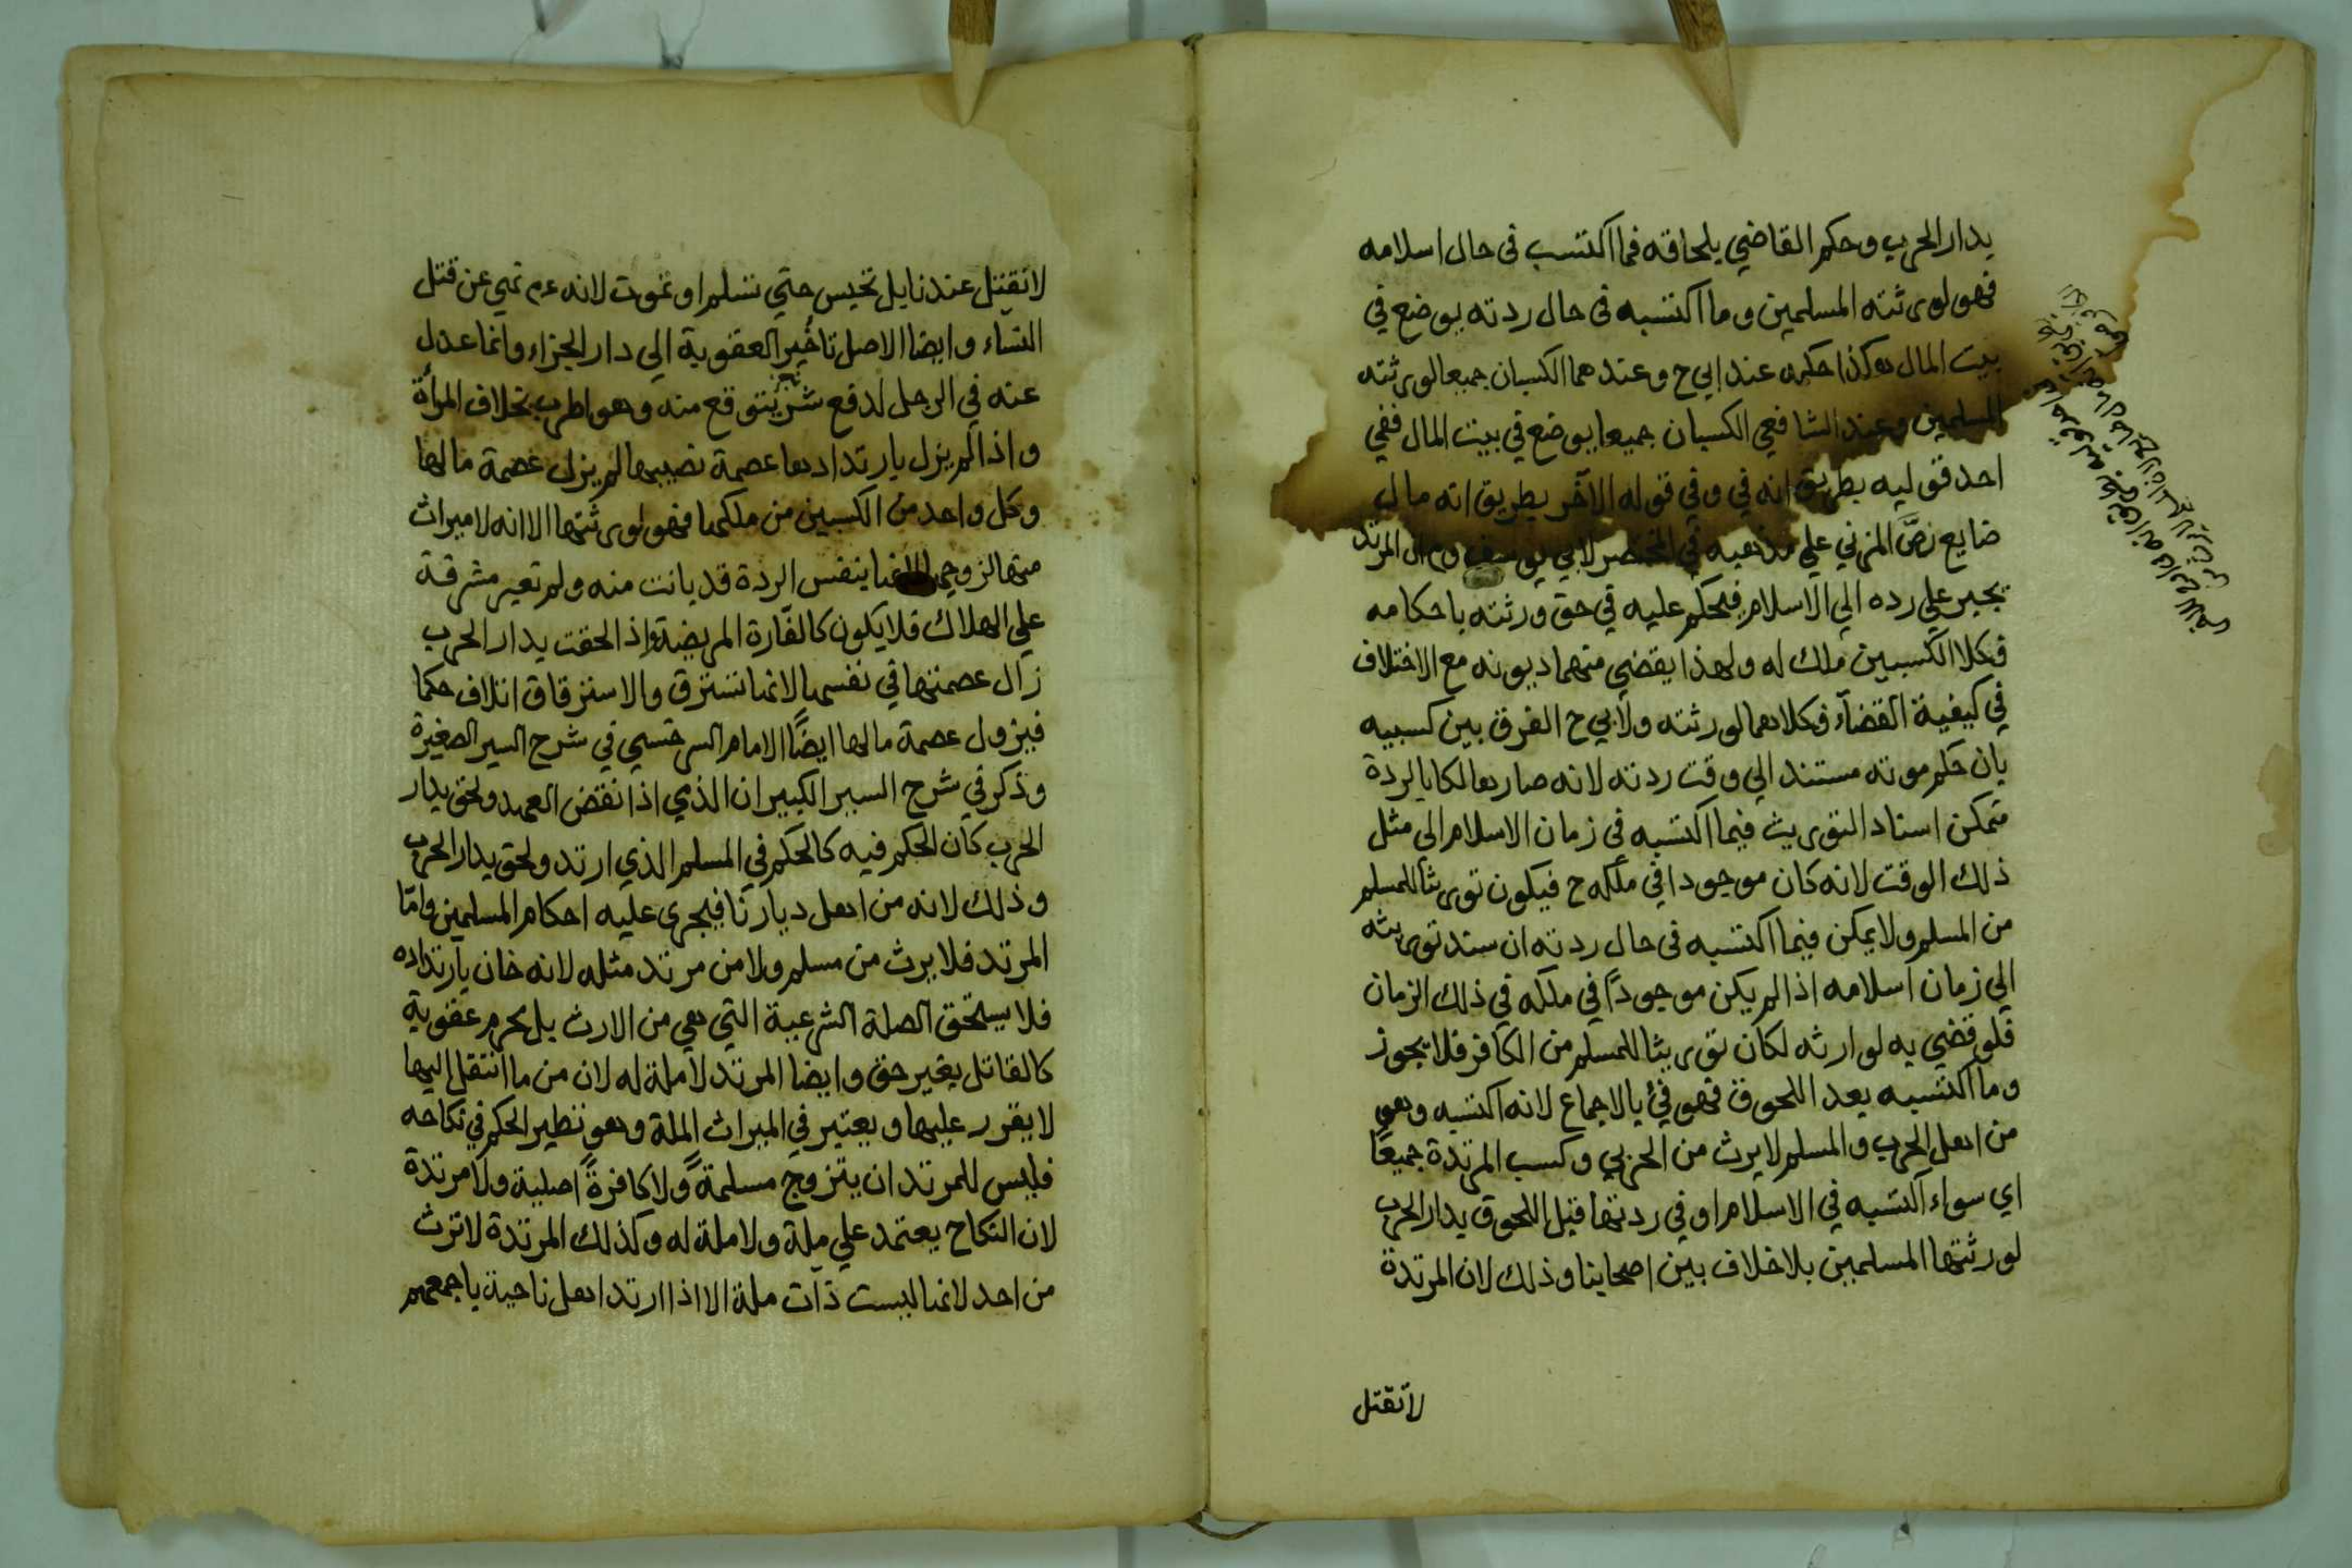 بدار الحرب وحكم القاضي بلحاقه فما اكتسب في حال اسلامه
فهو لورثته المسلمين وما اكتسبه في حال ردته يوضع في
بيت المال هكذا حكمه عند ابي ح وعندهما الكسبان جميعا لورثته
المسلمين وعند الشافعي الكسبان جميعا يوضع في بيت المال ففي
احد قوليه بطريق انه في وفي قوله الآخر بطريق انه مال
ضايع نصّ المزني علي مذهبه في المختصر لابي يوسف وم ان المرتد
يجبر علي رده الي الاسلام فيحكم عليه في حق ورثته باحكامه
فكلا الكسبين ملك له ولهذا يقضي منهما ديونه مع الاختلاف
في كيفية القضآء فكلاهما لورثته ولابي ح الفرق بين كسبيه
بان حكم موته مستند الي وقت ردته لانه صار هالكا بالردة
فيمكن اسناد التوريث فيما اكتسبه في زمان الاسلام الى مثل
ذلك الوقت لانه كان موجودا في ملكه ح فيكون توريثا للمسلم
من المسلم ولا يمكن فيما اكتسبه في حال ردته ان سند توريثه
الي زمان اسلامه اذا لم يكن موجودًا في ملكه في ذلك الزمان
فلو قضي به لوارثه لكان توريثا للمسلم من الكافر فلا يجوز
وما اكتسبه بعد اللحوق فهو فيئ بالاجماع لانه اكتسبه وهو
من اهل الحرب والمسلم لا يرث من الحربي وكسب المرتدة جميعًا
اي سواء اكتسبه في الاسلام او في ردتها قبل اللحوق بدار الحرب
لورثتها المسلمين بلا خلاف بين اصحابنا وذلك لان المرتدة
لا تقتل
لا تقتل عندنا بل تحبس حتي تسلم او تموت لانه عم نهي عن قتل
النساء وايضا الاصل تاخير العقوبة الي دار الجزاء وانما عدل
عنه في الرجل لدفع شر يتوقع منه وهو الحرب بخلاف المرأة
واذا لم يزل بارتدادها عصمة نفسها لم يزل عصمة مالها
وكل واحد من الكسبين من ملكها فهو لورثتها الا انه لا ميراث
منها لزوجها لانها بنفس الردة قد بانت منه ولم تعير مشرفة
علي الهلاك فلا يكون كالفارة المريضة واذ الحقت بدار الحرب
زال عصمتها في نفسها لانها تسترق والاسترقاق اتلاف حكما
فيزول عصمة مالها ايضًا الامام السرخسي في شرح السير الصغيرة
وذكر في شرح السير الكبير ان الذي اذا نقض العهد ولحق بدار
الحرب كان الحكم فيه كالحكم في المسلم الذي ارتد ولحق بدار الحرب
وذلك لانه من اهل ديارنا فيجرى عليه احكام المسلمين وامّا
المرتد فلا يرث من مسلم ولا من مرتد مثله لانه خان بارتداده
فلا يستحق الصلة الشرعية التي هي من الارث بل يحرم عقوبة
كالقاتل بغير حق وايضا المرتد لا ملة له لان من ما انتقل اليها
لا يقرر عليها ويعتبر في الميراث الملة وهو نظير الحكم في نكاحه
فليس للمرتد ان يتزوج مسلمةً ولا كافرةً اصلية ولا مرتدة
لان النكاح يعتمد علي ملة ولا ملة له وكذلك المرتدة لا ترث
من احد لانها ليست ذات ملة الا اذا ارتد اهل ناحية باجمعهم